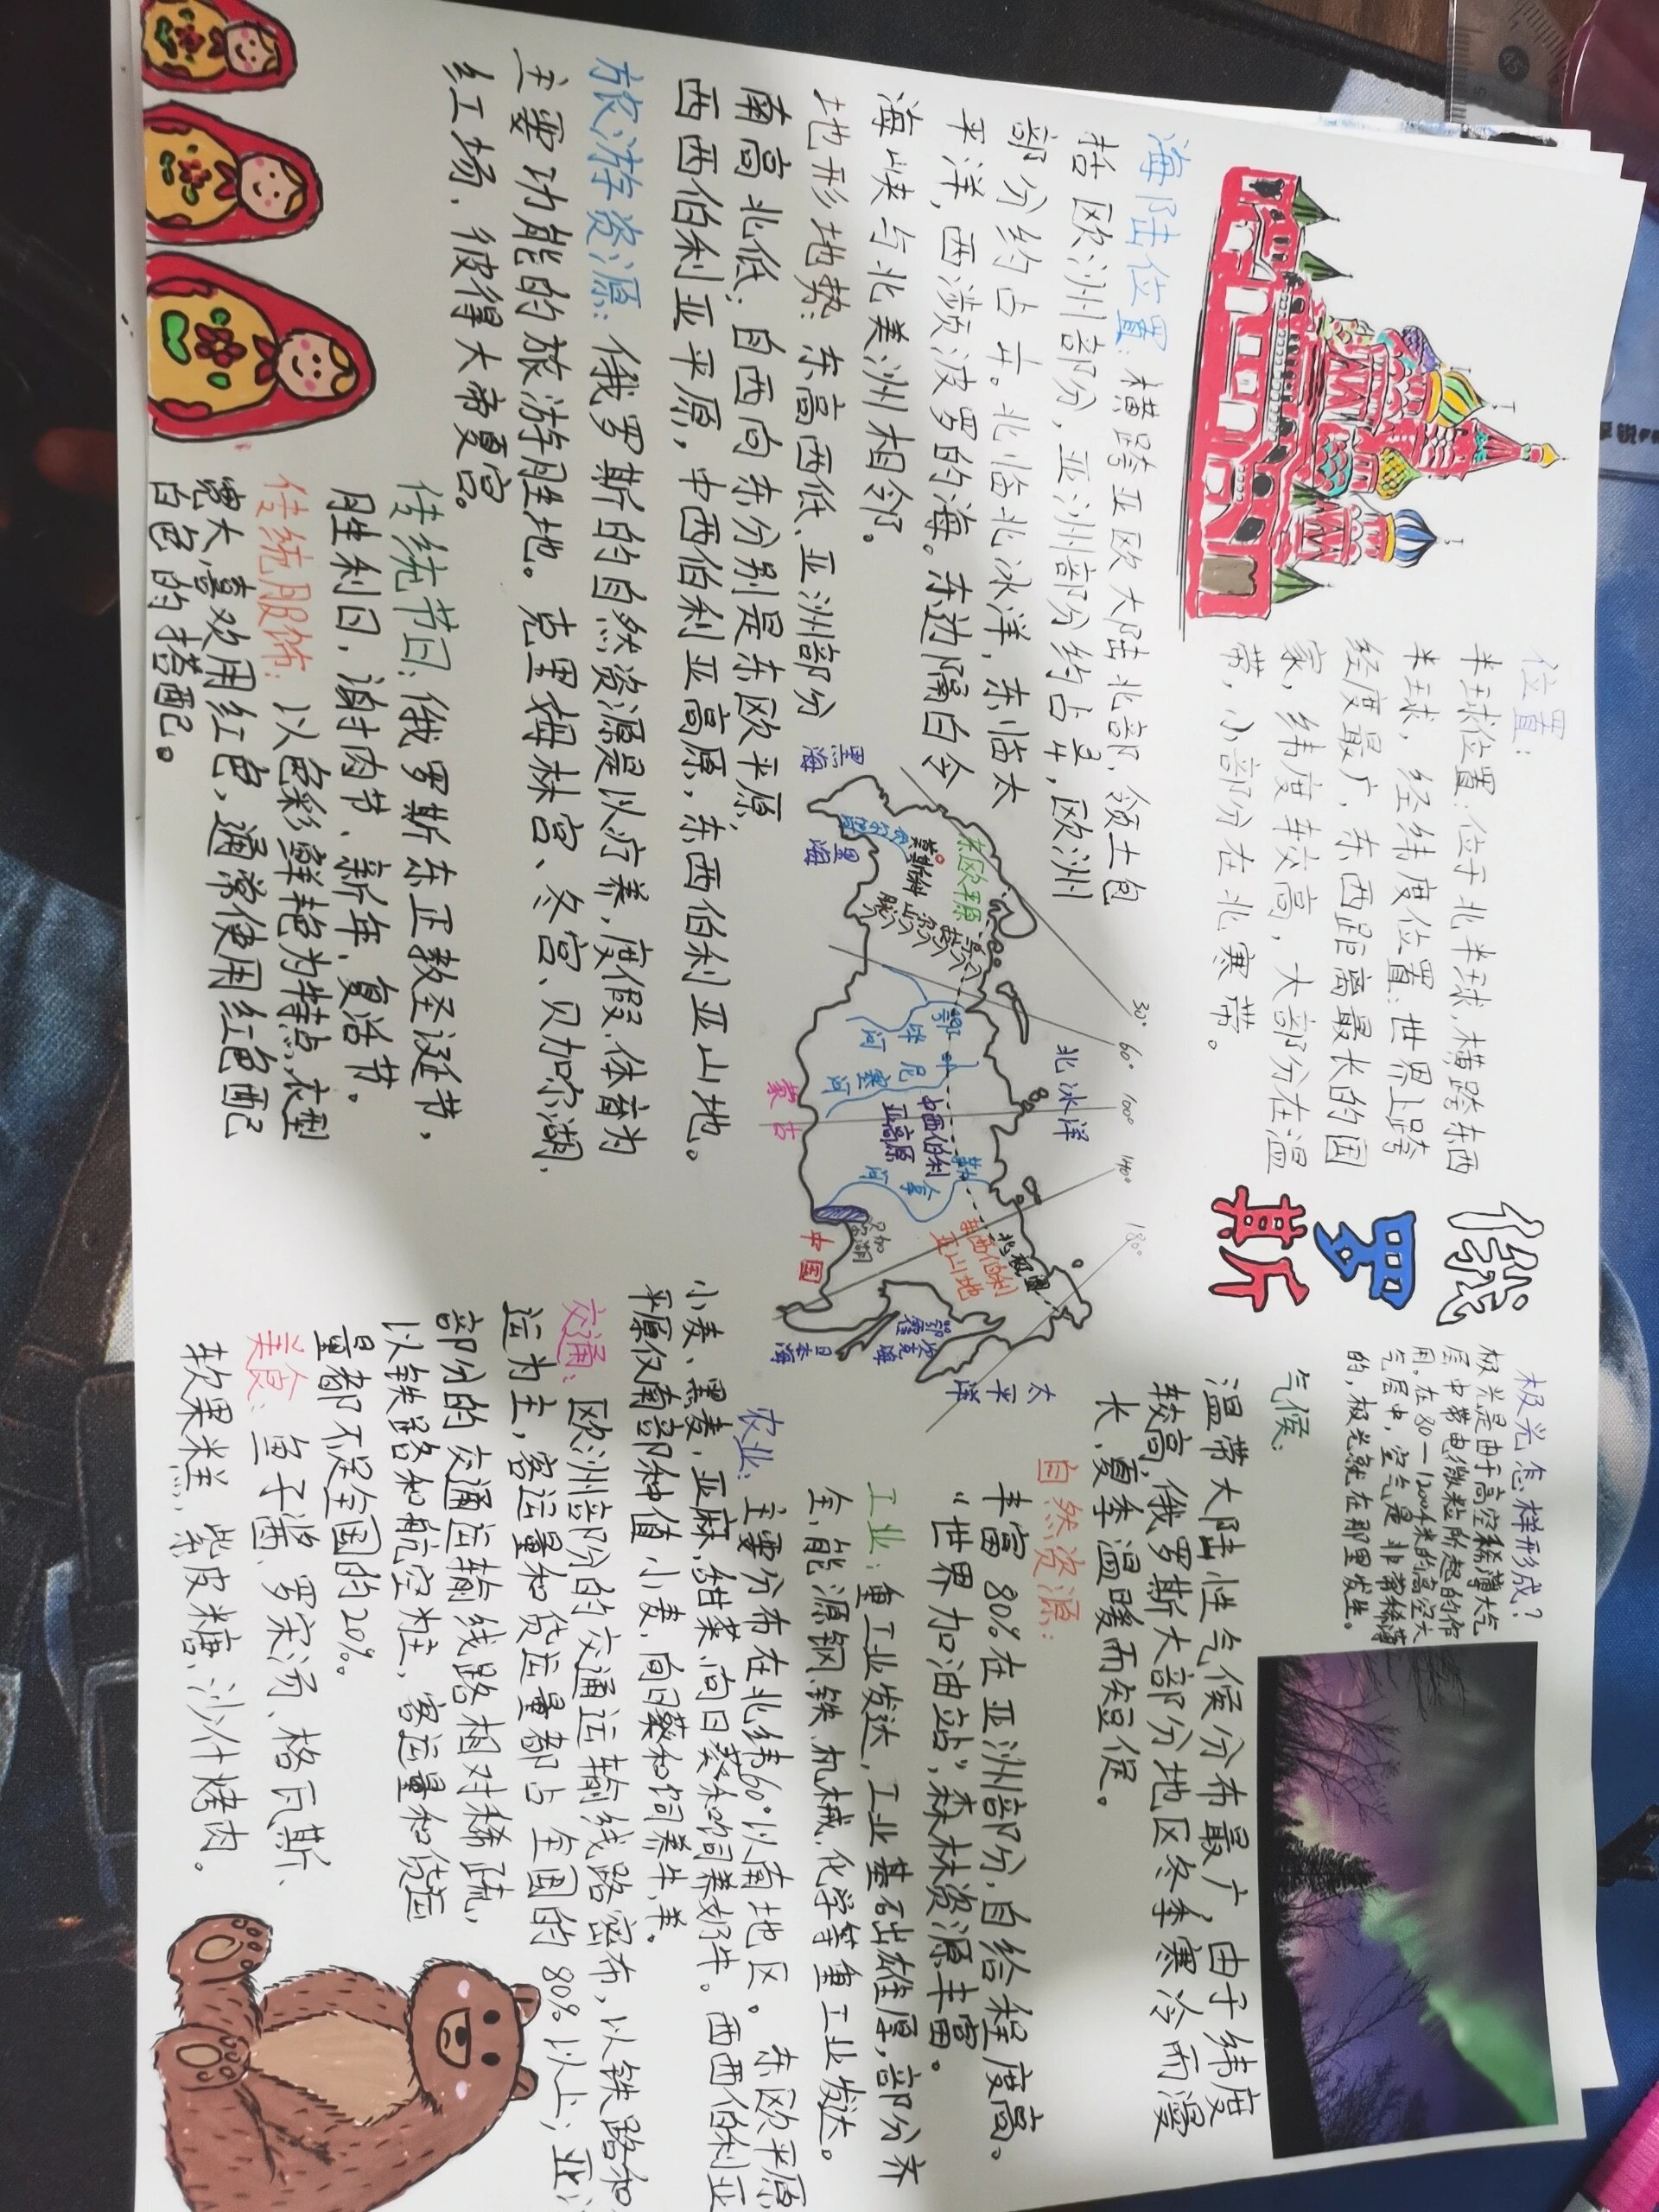 俄
罗
斯
位置：
半球位置：位于北半球，横跨东西
半球，经纬度位置：世界上跨
经度最广，东西距离最长的国
家，纬度较高，大部分在温
带，小部分在北寒带。
海陆位置：横跨亚欧大陆北部，领土包
括欧洲部分，亚洲部分约占¾，欧洲
部分约占¼。北临北冰洋，东临太
平洋，西濒波罗的海。东边隔白令
海峡与北美洲相邻。
地形地势：东高西低、亚洲部分
南高北低；自西向东分别是东欧平原，
西西伯利亚平原，中西伯利亚高原，东西伯利亚山地。
旅游资源：俄罗斯的自然资源是以疗养，度假、体育为
主要功能的旅游胜地。克里姆林宫、冬宫、贝加尔湖、
红场、彼得大帝夏宫。
传统节日：俄罗斯东正教圣诞节，
胜利日，谢肉节、新年，复活节。
传统服饰：以色彩鲜艳为特点，衣型
宽大，喜欢用红色，通常使用红色配
白色的搭配。
30°
60°
100°
140°
180°
北冰洋
太平洋
黑海
里海
东欧平原
莫斯科
伏尔加河
乌拉尔山脉
鄂毕河
叶尼塞河
中西伯利
亚高原
勒拿河
东西伯利
亚山地
北极圈
贝加尔湖
鄂霍次克海
日本海
蒙古
中国
极光怎样形成？
极光是由于高空稀薄大气
层中带电微粒所起的作
用。在80—1200千米的高空大
气层中，空气是非常稀薄
的，极光就在那里发生。
气候：
温带大陆性气候分布最广，由于纬度
较高，俄罗斯大部分地区冬季寒冷而漫
长，夏季温暖而短促。
自然资源：
丰富 80%在亚洲部分，自给程度高。
“世界加油站”，森林资源丰富。
工业：重工业发达，工业基础雄厚，部分齐
全，能源钢铁、机械、化学等重工业发达。
农业：主要分布在北纬60°以南地区。东欧平原
小麦、黑麦，亚麻，甜菜，向日葵和饲养奶牛。西西伯利亚
平原仅南部种值，小麦，向日葵和饲养牛、羊。
交通：欧洲部分的交通运输线路密布，以铁路和
运为主，客运量和货运量都占全国的80%以上；亚
部分的交通运输线路相对稀疏，
以铁路和航空为主，客运量和货运
量都不足全国的20%。
美食：鱼子酱、罗宋汤、格瓦斯、
软果米糕，紫皮糖，沙什烤肉。